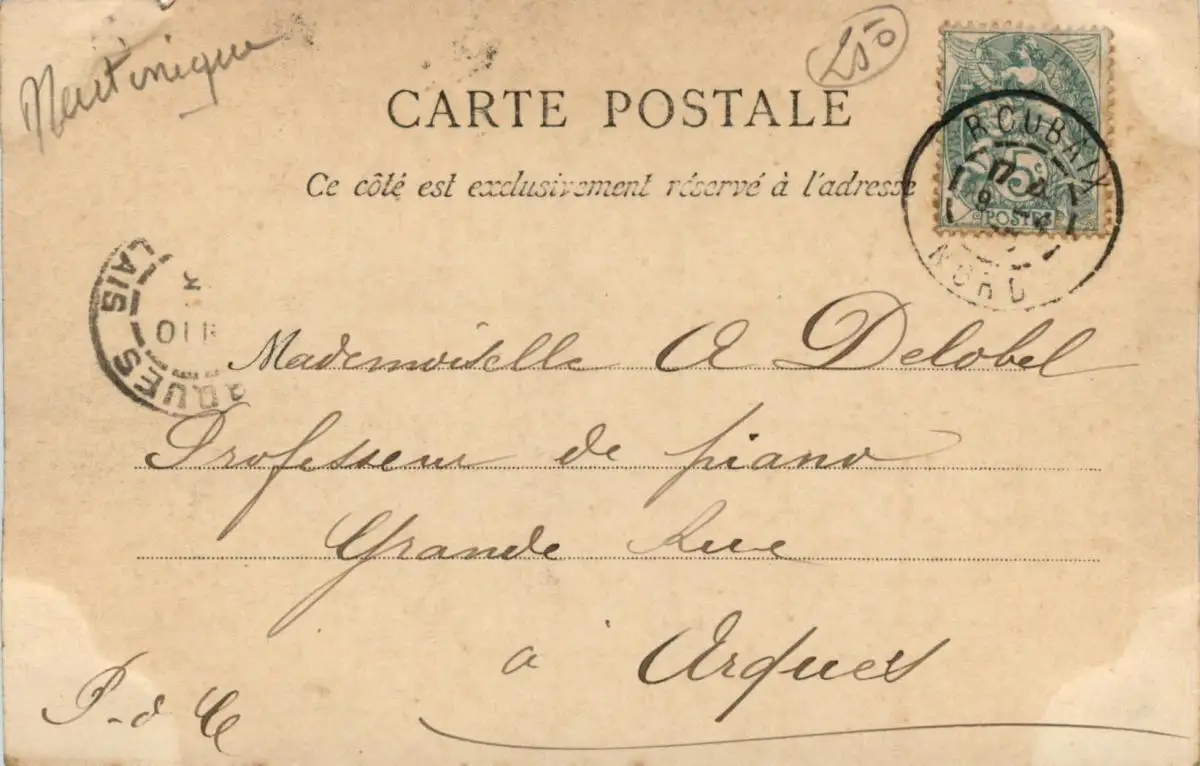 Martinique
250
CARTE POSTALE
Ce côté est exclusivement réservé à l'adresse
5c
POSTES
ROUBAIX
NORD
LAIS
QUES
Mademoiselle A Delobel
Professeur de piano
Grande Rue
à Arques
P-d C